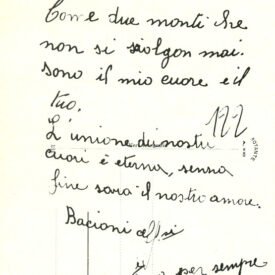 Come due monti che
non si siolgon mai.
sono il mio cuore e il
tuo.
122
L'unione dei nostri
cuori è eterna, senna
fine sarà il nostro amore.
Bacioni
per sempre